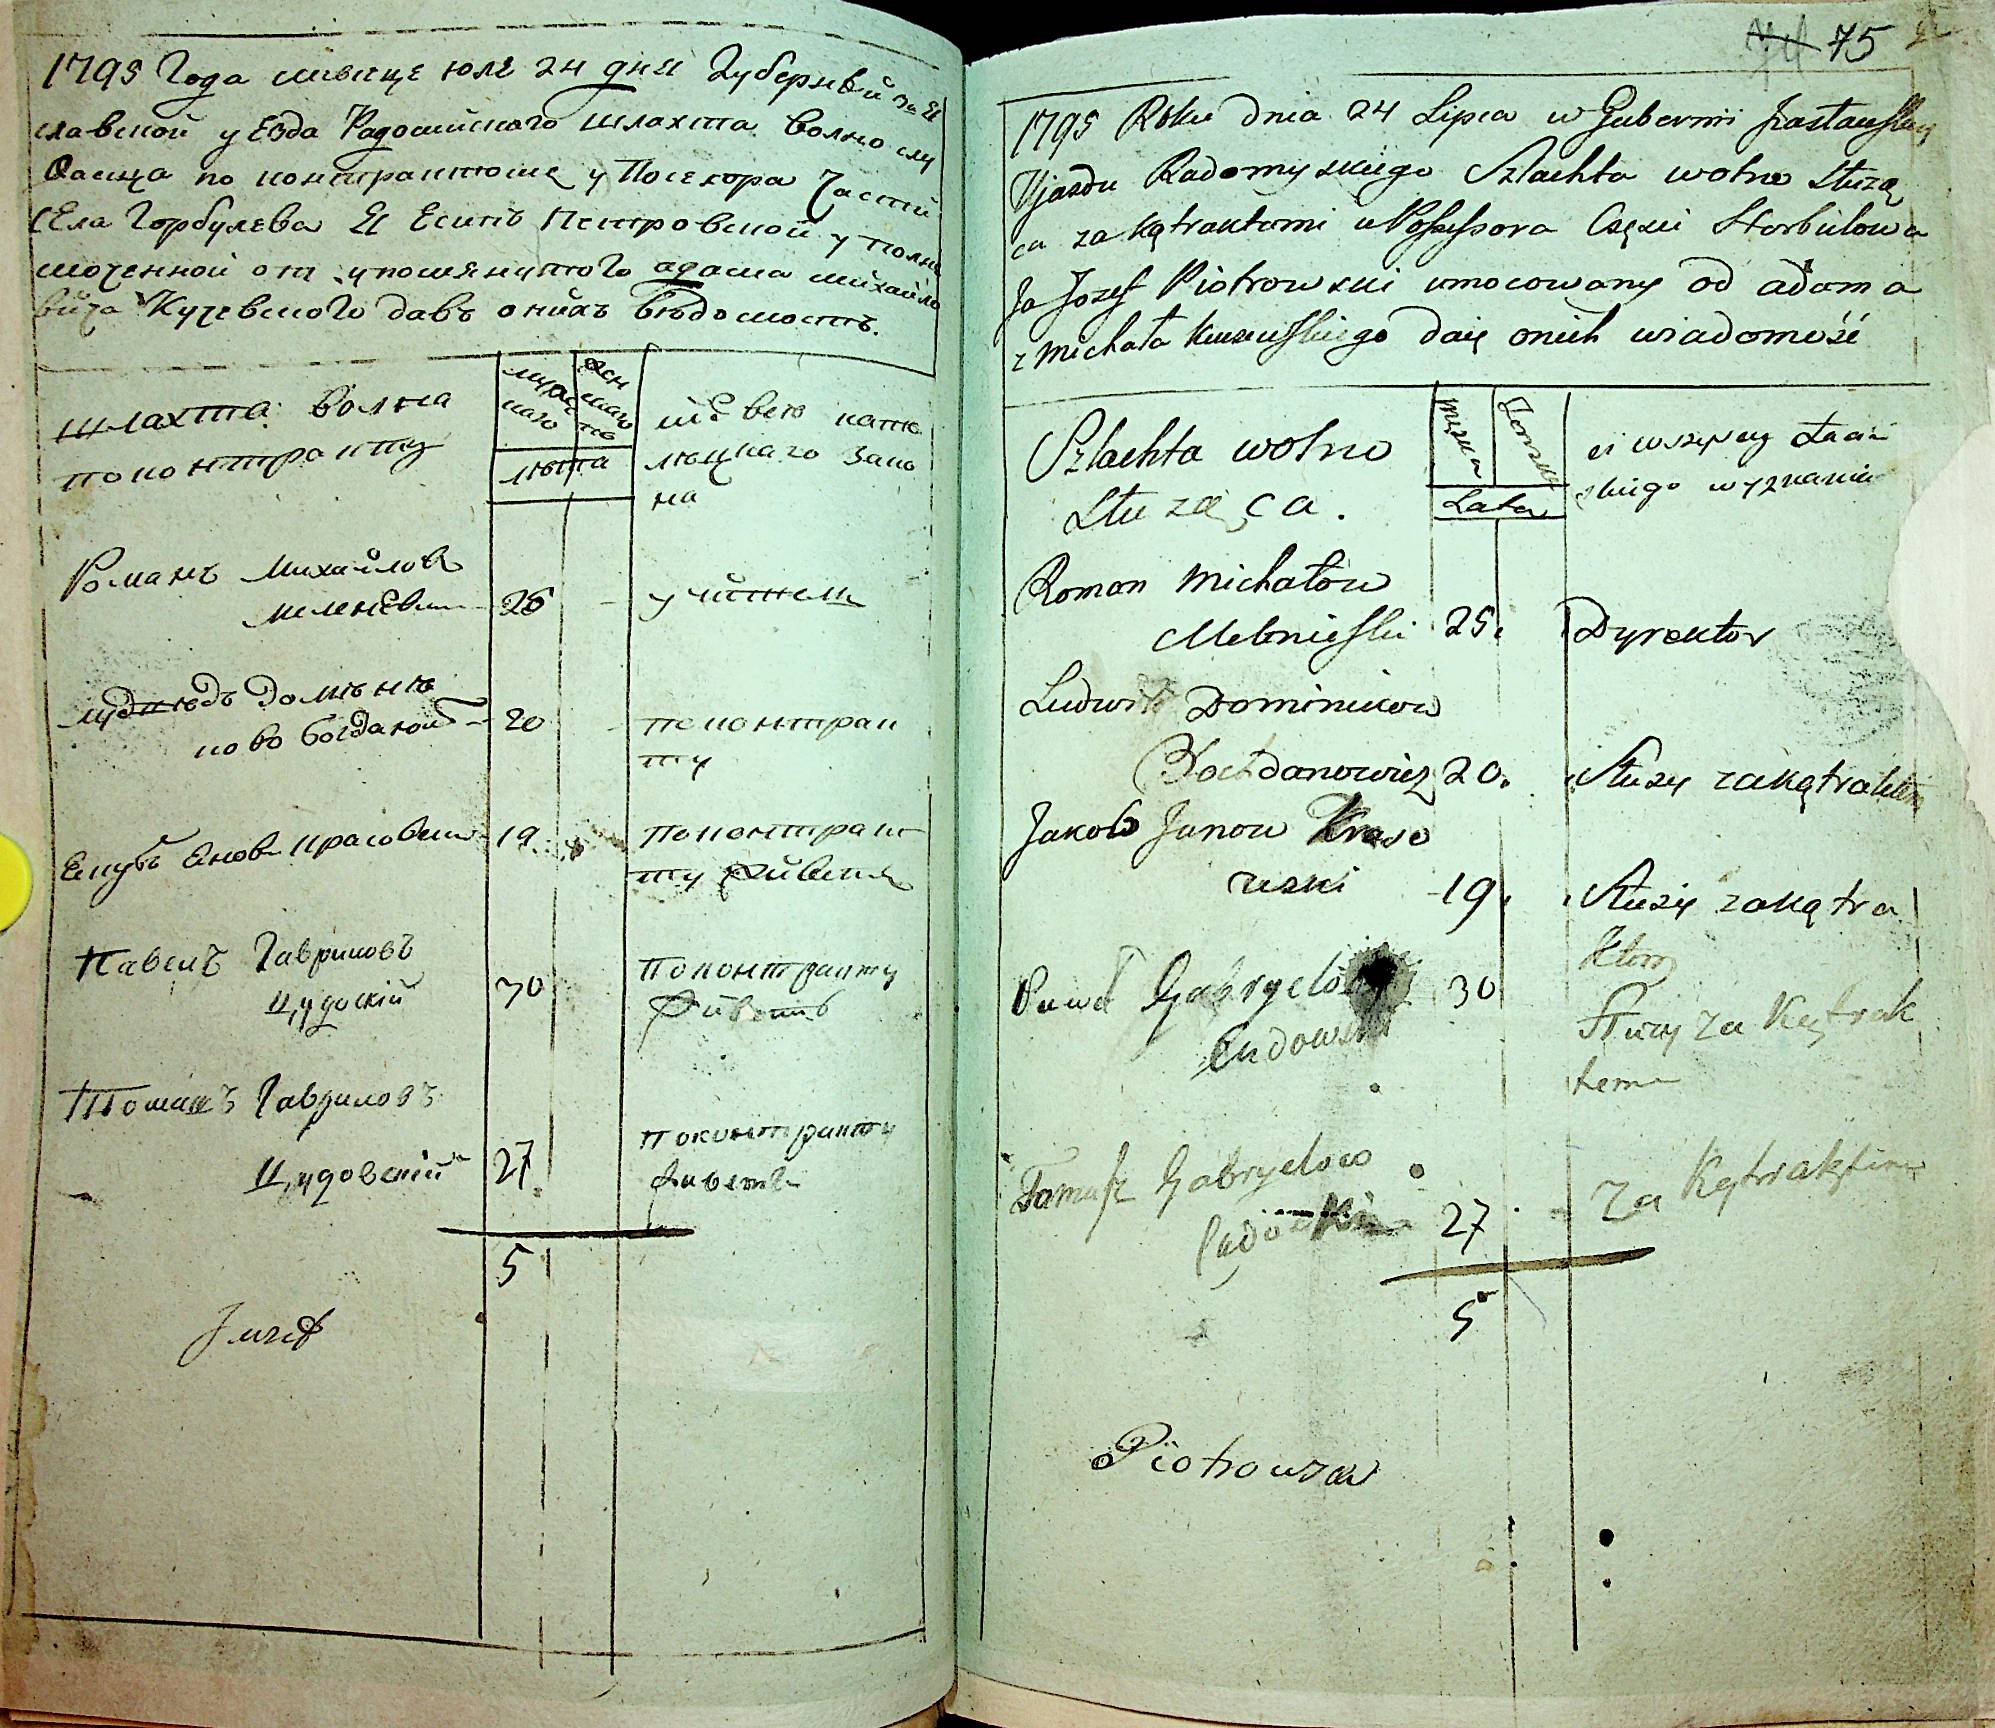 1795 Года мѣсяце юлѣ 24 дня Губернѣй за И
славской уезда Радомиского шлахта волно слу
жаща по контрактоше у Посесора Части
Села Горбулева Я Есипъ Петровской уполно
моченной отъ упомянутого адама михайло
вича Кучевского давъ онихъ вѣдомость.
шлахта волна
по контракту
мужес
каго
жен
скаго
лѣта
всѣ като
лѣцкаго зако
на
Романъ Михайловъ
26
учитель
Доминѣ
ково Богдановичъ
20
по контрак
ту
Якубъ Яновъ Красовски
19
по контрак
ту живетъ
Павелъ Гавриловъ
Цудоскій
30
По контракту
живетъ
Томашъ Гавриловъ
Цудовскій
27
по контракту
живетъ
5
75
1795 Roku dnia 24 Lipca w Gubernii Izasławskiy
Ujazdu Radomyskiego Szlachta wolno służą
ca za kątraktami u Possessora Części Horbulowa
Ja Jozef Piotrowski umocowany od adama
z michała daię onich wiadomość
Szlachta wolno
służąca.
męska
żonska
Lata
ci wszyscy Łaciń
skiego wyznania
Roman Michałow
Melnieski 25.
Dyrektor
Ludwik Dominikow
Bochdanowicz 20.
Służy zakątraktem
Jakob Janow Kraso
wski 19.
Służy zakątra
ktem
Paweł Gabryelow 30
Cudowski
Służy za Kątrak
tem
Tomasz Gabryelow
27
za Kątraktem
5
Piotrowski